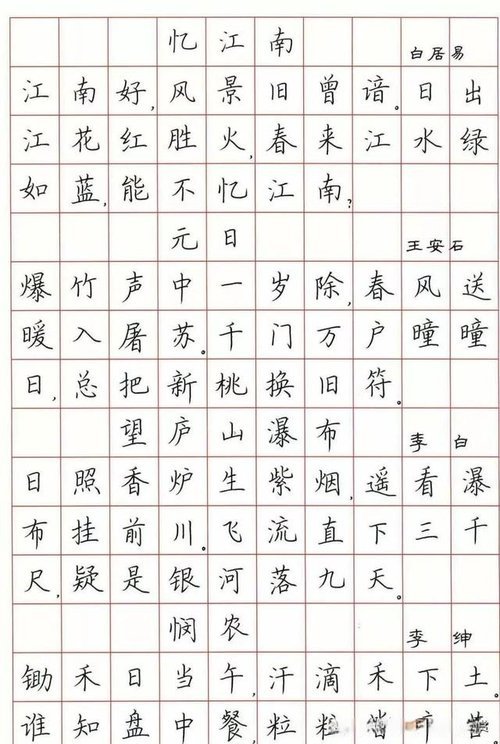 忆江南 白居易
江南好,风景旧曾谙。日出
江花红胜火,春来江水绿
如蓝,能不忆江南?
元日 王安石
爆竹声中一岁除,春风送
暖入屠苏。千门万户曈曈
日,总把新桃换旧符。
望庐山瀑布 李白
日照香炉生紫烟,遥看瀑
布挂前川。飞流直下三千
尺,疑是银河落九天。
悯农 李绅
锄禾日当午,汗滴禾下土。
谁知盘中餐,粒粒皆